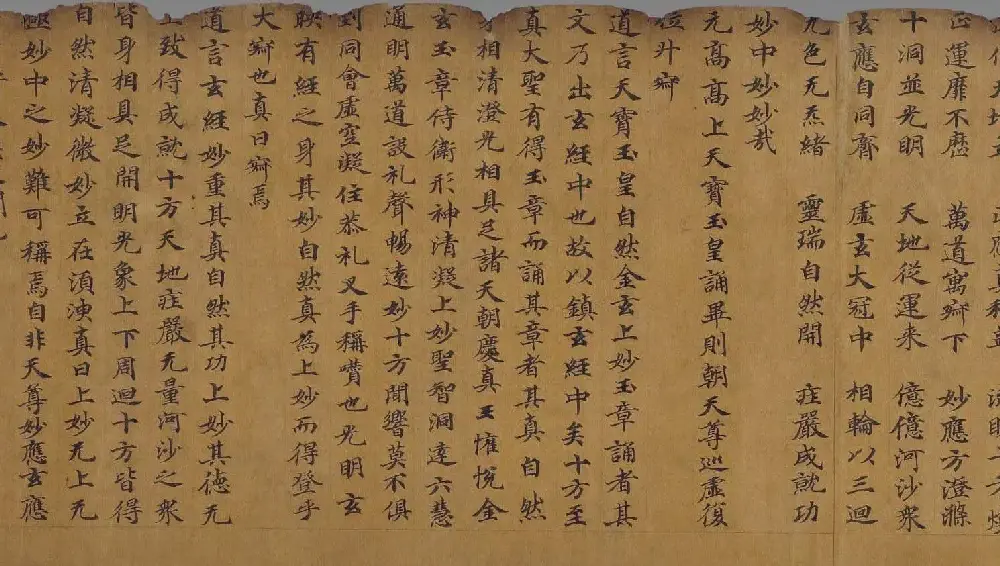 正運靡不歷　萬道寓寂下　妙應方澄滌
十洞並光明　天地從運来　億億河沙衆
玄應自同齊　虛玄大冠中　相輪以三迴
九色无炁緒　靈瑞自然開　庄嚴成就功
妙中妙妙哉
无高高上天寶玉皇誦畢則朝天尊巡虛復
位升寂
道言天寶玉皇自然金玄上妙玉章誦者其
文乃出玄經中也故以鎮玄經中矣十方至
真大聖有得玉章而誦其章者其真自然
身相清澄光相具足諸天朝慶真王懽悅金
玄玉章侍衛形神清凝上妙聖智洞達六慧
通明萬道設礼聲暢遠妙十方聞響莫不俱
到同會虛空凝住恭礼叉手稱讚也光明玄
映有經之身其妙自然真為上妙而得登乎
大寂也真曰寂焉
道言玄經妙重其真自然其功上妙其德无
上致得成就十方天地庄嚴无量河沙之衆
皆身相具足開明光象上下周迴十方皆得
自然清凝微妙立在湏臾真曰上妙无上无
極妙中之妙難可稱焉自非天尊妙應玄應